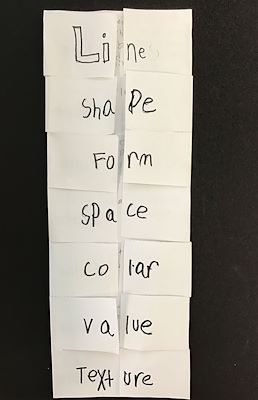 Lines
shape
Form
space
colar
value
Texture